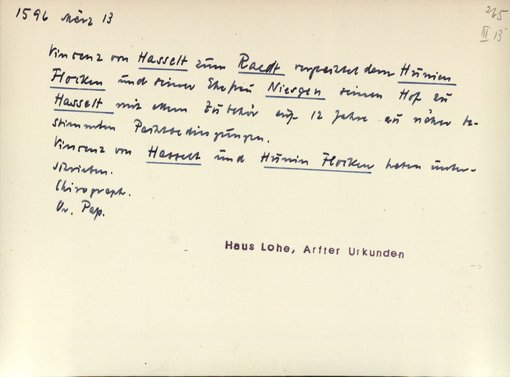 1596 März 13
265
III 13
Vinzenz von Hasselt zum Raedt verpachtet dem Hunien
Flocken und seiner Ehefrau Niesgen seinen Hof zu
Hasselt mit allem Zubehör auf 12 Jahre zu näher be-
stimmten Pachtbedingungen.
Vinzenz von Hasselt und Hunin Flocken haben unter-
schrieben.
Chirograph.
Or. Pap.
Haus Lohe, Arfter Urkunden